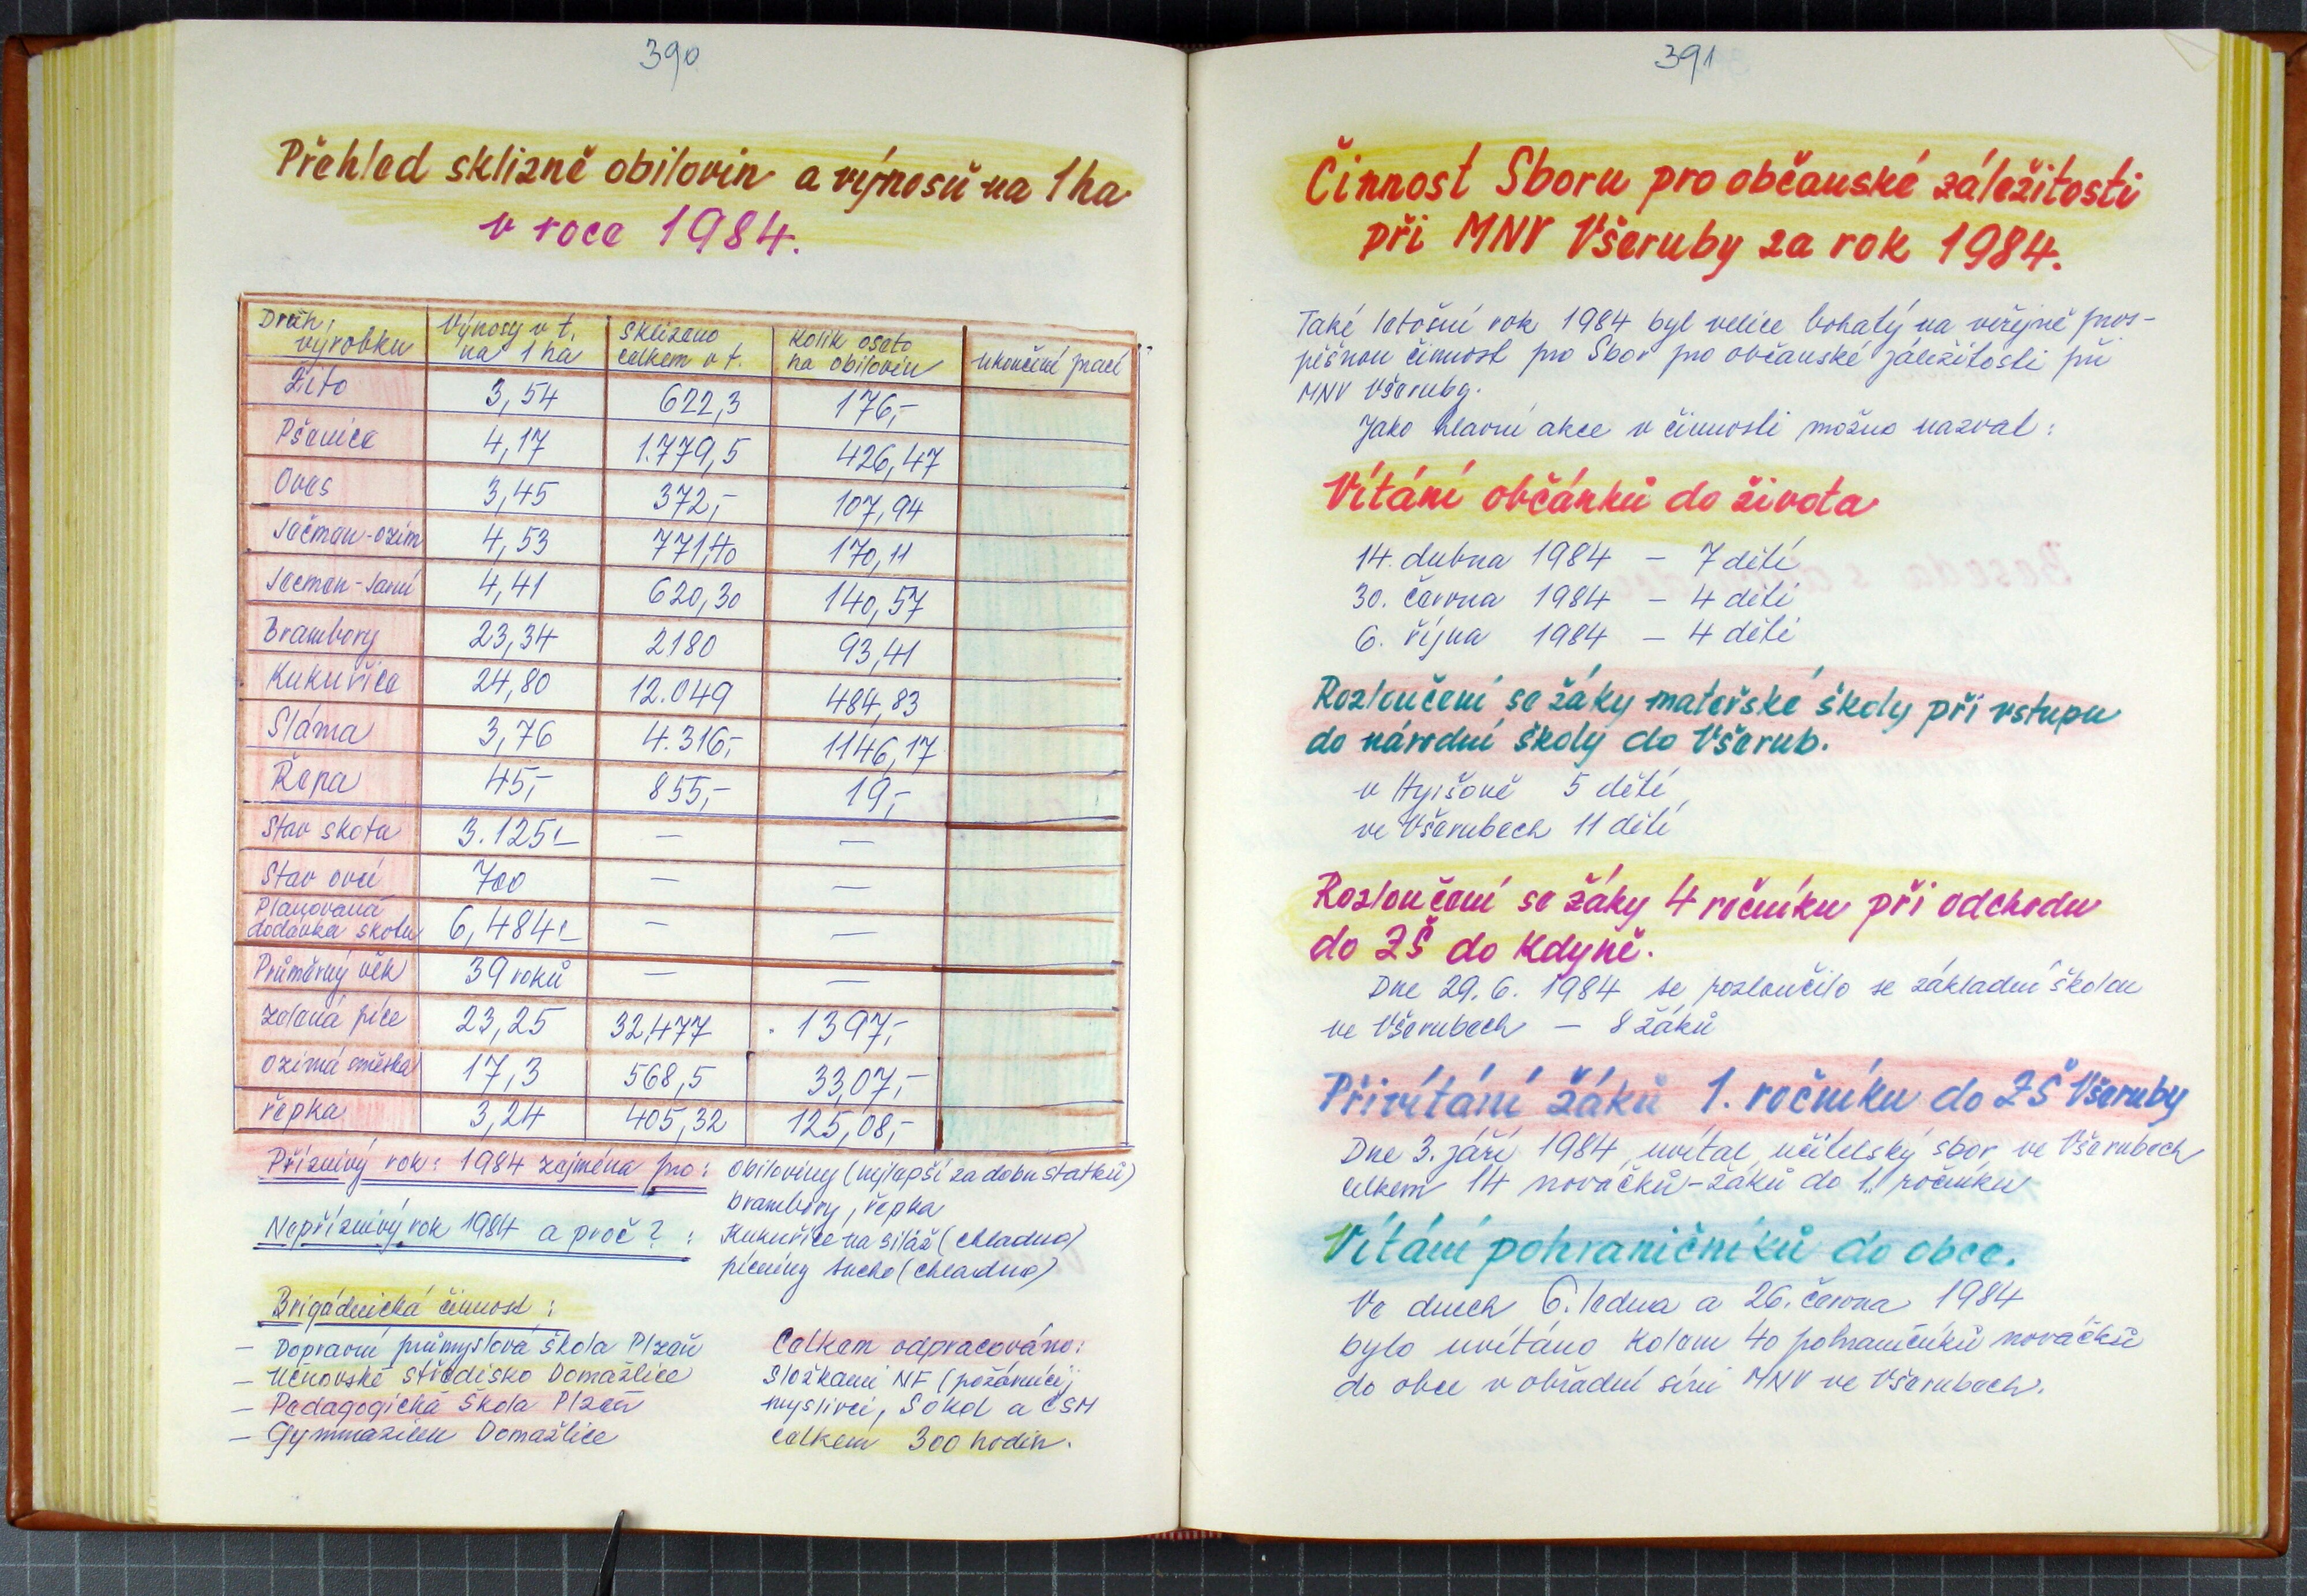 390
Přehled sklizně obilovin a výnosů na 1 ha
v roce 1984.
Druh výrobku | Výnosy v t. na 1 ha | Sklizeno celkem v t. | Kolik oseto ha obilovin | ukončení prací
Žito 3,54 622,3 176,-
Pšenice 4,17 1.779,5 426,47
Oves 3,45 372,- 107,94
Ječmen-ozim 4,53 771,40 170,11
Ječmen-jarní 4,41 620,30 140,57
Brambory 23,34 2180 93,41
Kukuřice 24,80 12.049 484,83
Sláma 3,76 4.316,- 1146,17
Řepa 45,- 855,- 19,-
Stav skotu 3.125,- — —
Stav ovcí 700 — —
Plánovaná dodávka skotu 6,484,- — —
Průměrný věk 39 roků — —
Zelená píce 23,25 32,477 1397,-
Ozimá směska 17,3 568,5 33,07,-
Řepka 3,24 405,32 125,08,-
Příznivý rok: 1984 zejména pro: obiloviny (nejlepší za dobu statků)
brambory, řepka
Nepříznivý rok 1984 a proč?: Kukuřice na siláž (chladno)
pícniny sucho (chladno)
Brigádnická činnost:
– Dopravní průmyslová škola Plzeň
– Učňovské středisko Domažlice
– Pedagogická škola Plzeň
– Gymnazium Domažlice
Celkem odpracováno:
Složkami NF (požárníci,
myslivci, Sokol a ČSM
celkem 300 hodin.
391
Činnost Sboru pro občanské záležitosti
při MNV Všeruby za rok 1984.
Také letošní rok 1984 byl velice bohatý na veřejně pros-
pěšnou činnost pro Sbor pro občanské záležitosti při
MNV Všeruby.
Jako hlavní akce v činnosti možno nazvat:
Vítání občánků do života
14. dubna 1984 – 7 dětí
30. června 1984 – 4 děti
6. října 1984 – 4 děti
Rozloučení se žáky mateřské školy při vstupu
do národní školy do Všerub.
v Hyršově 5 dětí
ve Všerubech 11 dětí
Rozloučení se žáky 4 ročníku při odchodu
do ZŠ do Kdyně.
Dne 29. 6. 1984 se rozloučilo se základní školou
ve Všerubech – 8 žáků
Přivítání žáků 1. ročníku do ZŠ Všeruby
Dne 3. září 1984 uvítal učitelský sbor ve Všerubech
celkem 14 nováčků-žáků do 1. ročníku
Vítání pohraničníků do obce.
Ve dnech 6. ledna a 26. června 1984
bylo uvítáno kolem 40 pohraničníků nováčků
do obce v obřadní síni MNV ve Všerubech.